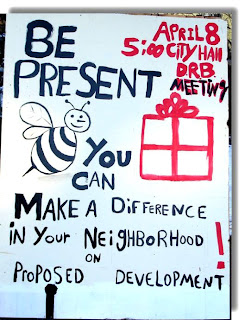 BE
PRESENT
APRIL 8
5:00 CITY HALL
DRB
MEETING
YOU
CAN
MAKE A DIFFERENCE
IN YOUR NEIGHBORHOOD !
ON
PROPOSED DEVELOPMENT